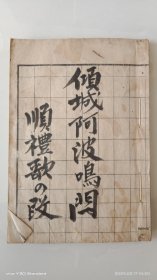 傾城阿波鳴門
順禮歌の段